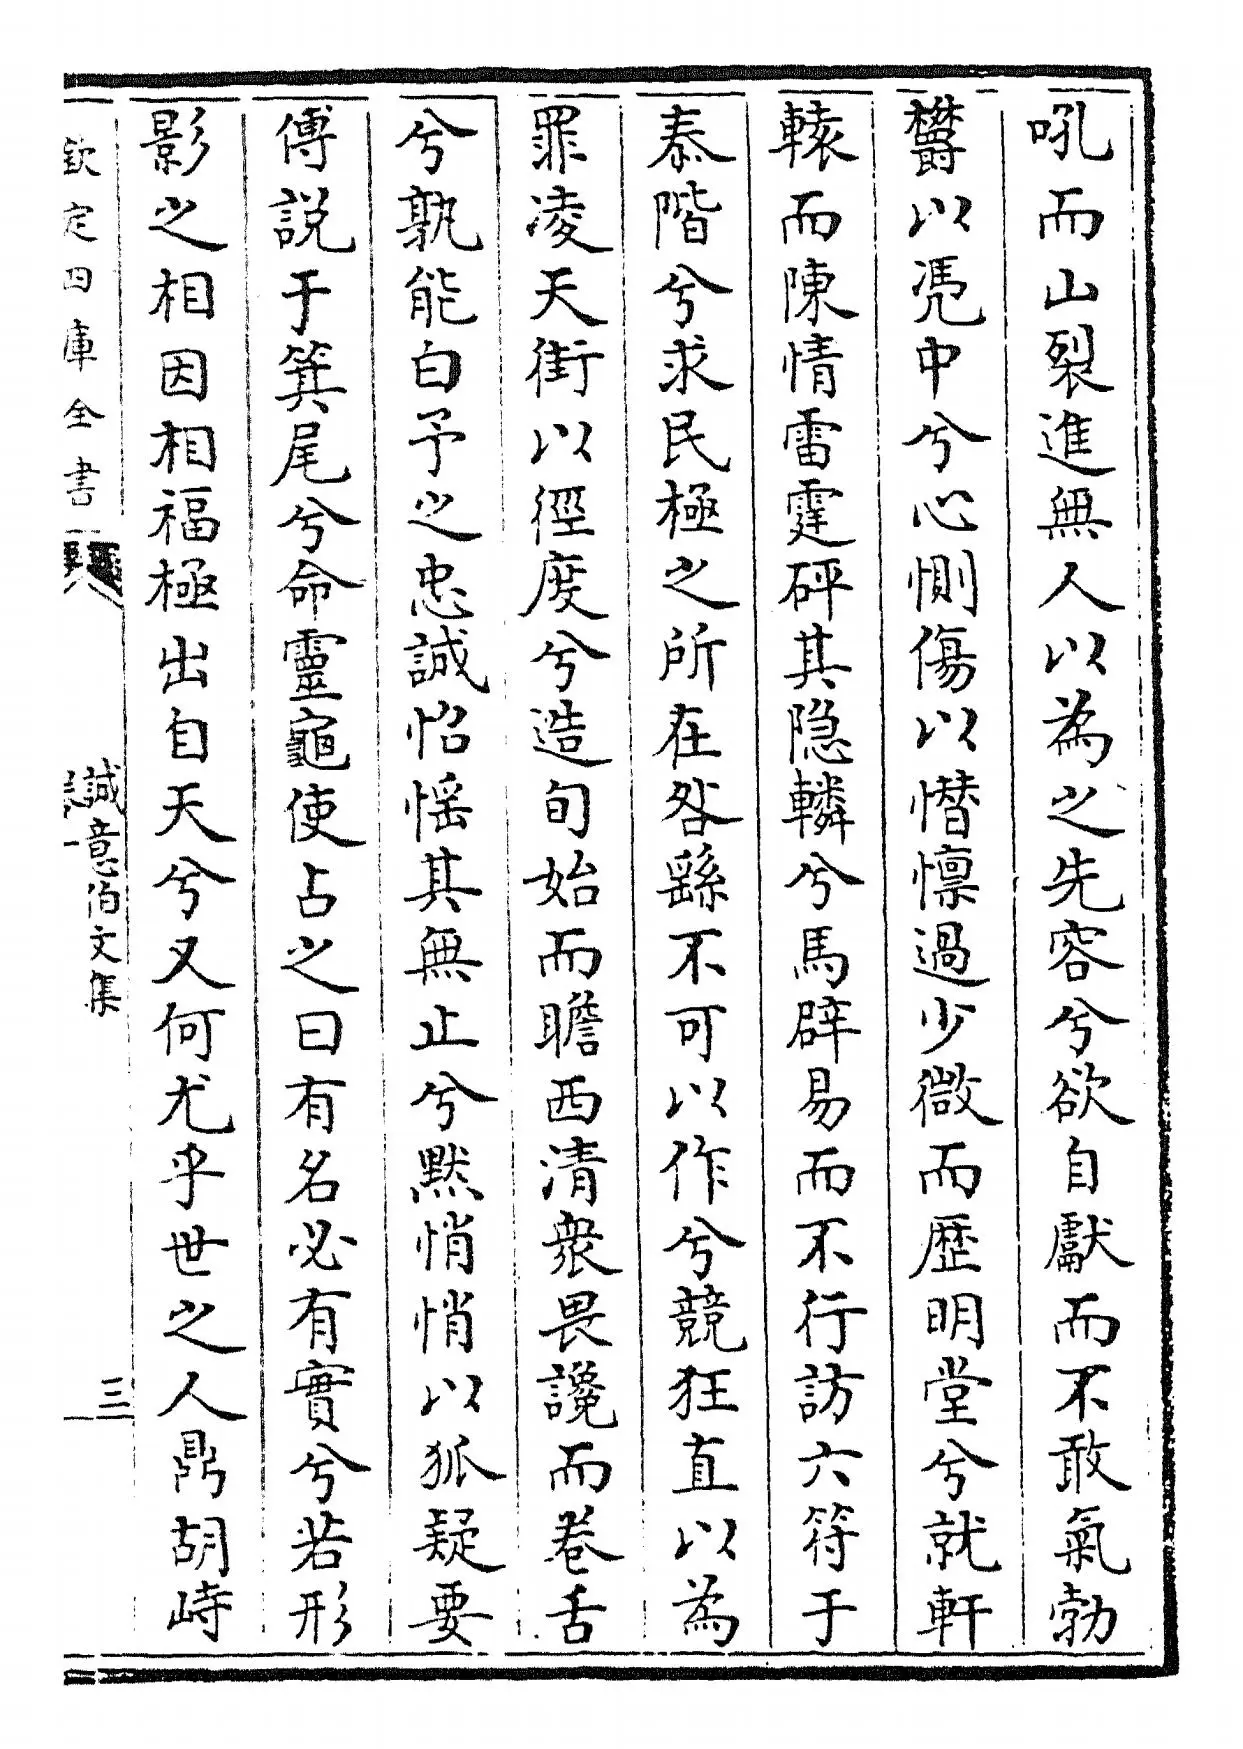 吼而山裂進無人以為之先容兮欲自獻而不敢氣勃
欝以馮中兮心惻傷以憯懍過少微而歴明堂兮就軒
轅而陳情雷霆砰其隐轔兮馬辟易而不行訪六符于
泰階兮求民極之所在咎繇不可以作兮競狂直以為
罪凌天街以徑度兮造旬始而瞻西清衆畏讒而卷舌
兮孰能白予之忠誠怊愮其無止兮默悄悄以狐疑要
傅説于箕尾兮命靈龜使占之曰有名必有實兮若形
影之相因相福極出自天兮又何尤乎世之人鼎胡峙
欽定四庫全書
誠意伯文集
卷一
三